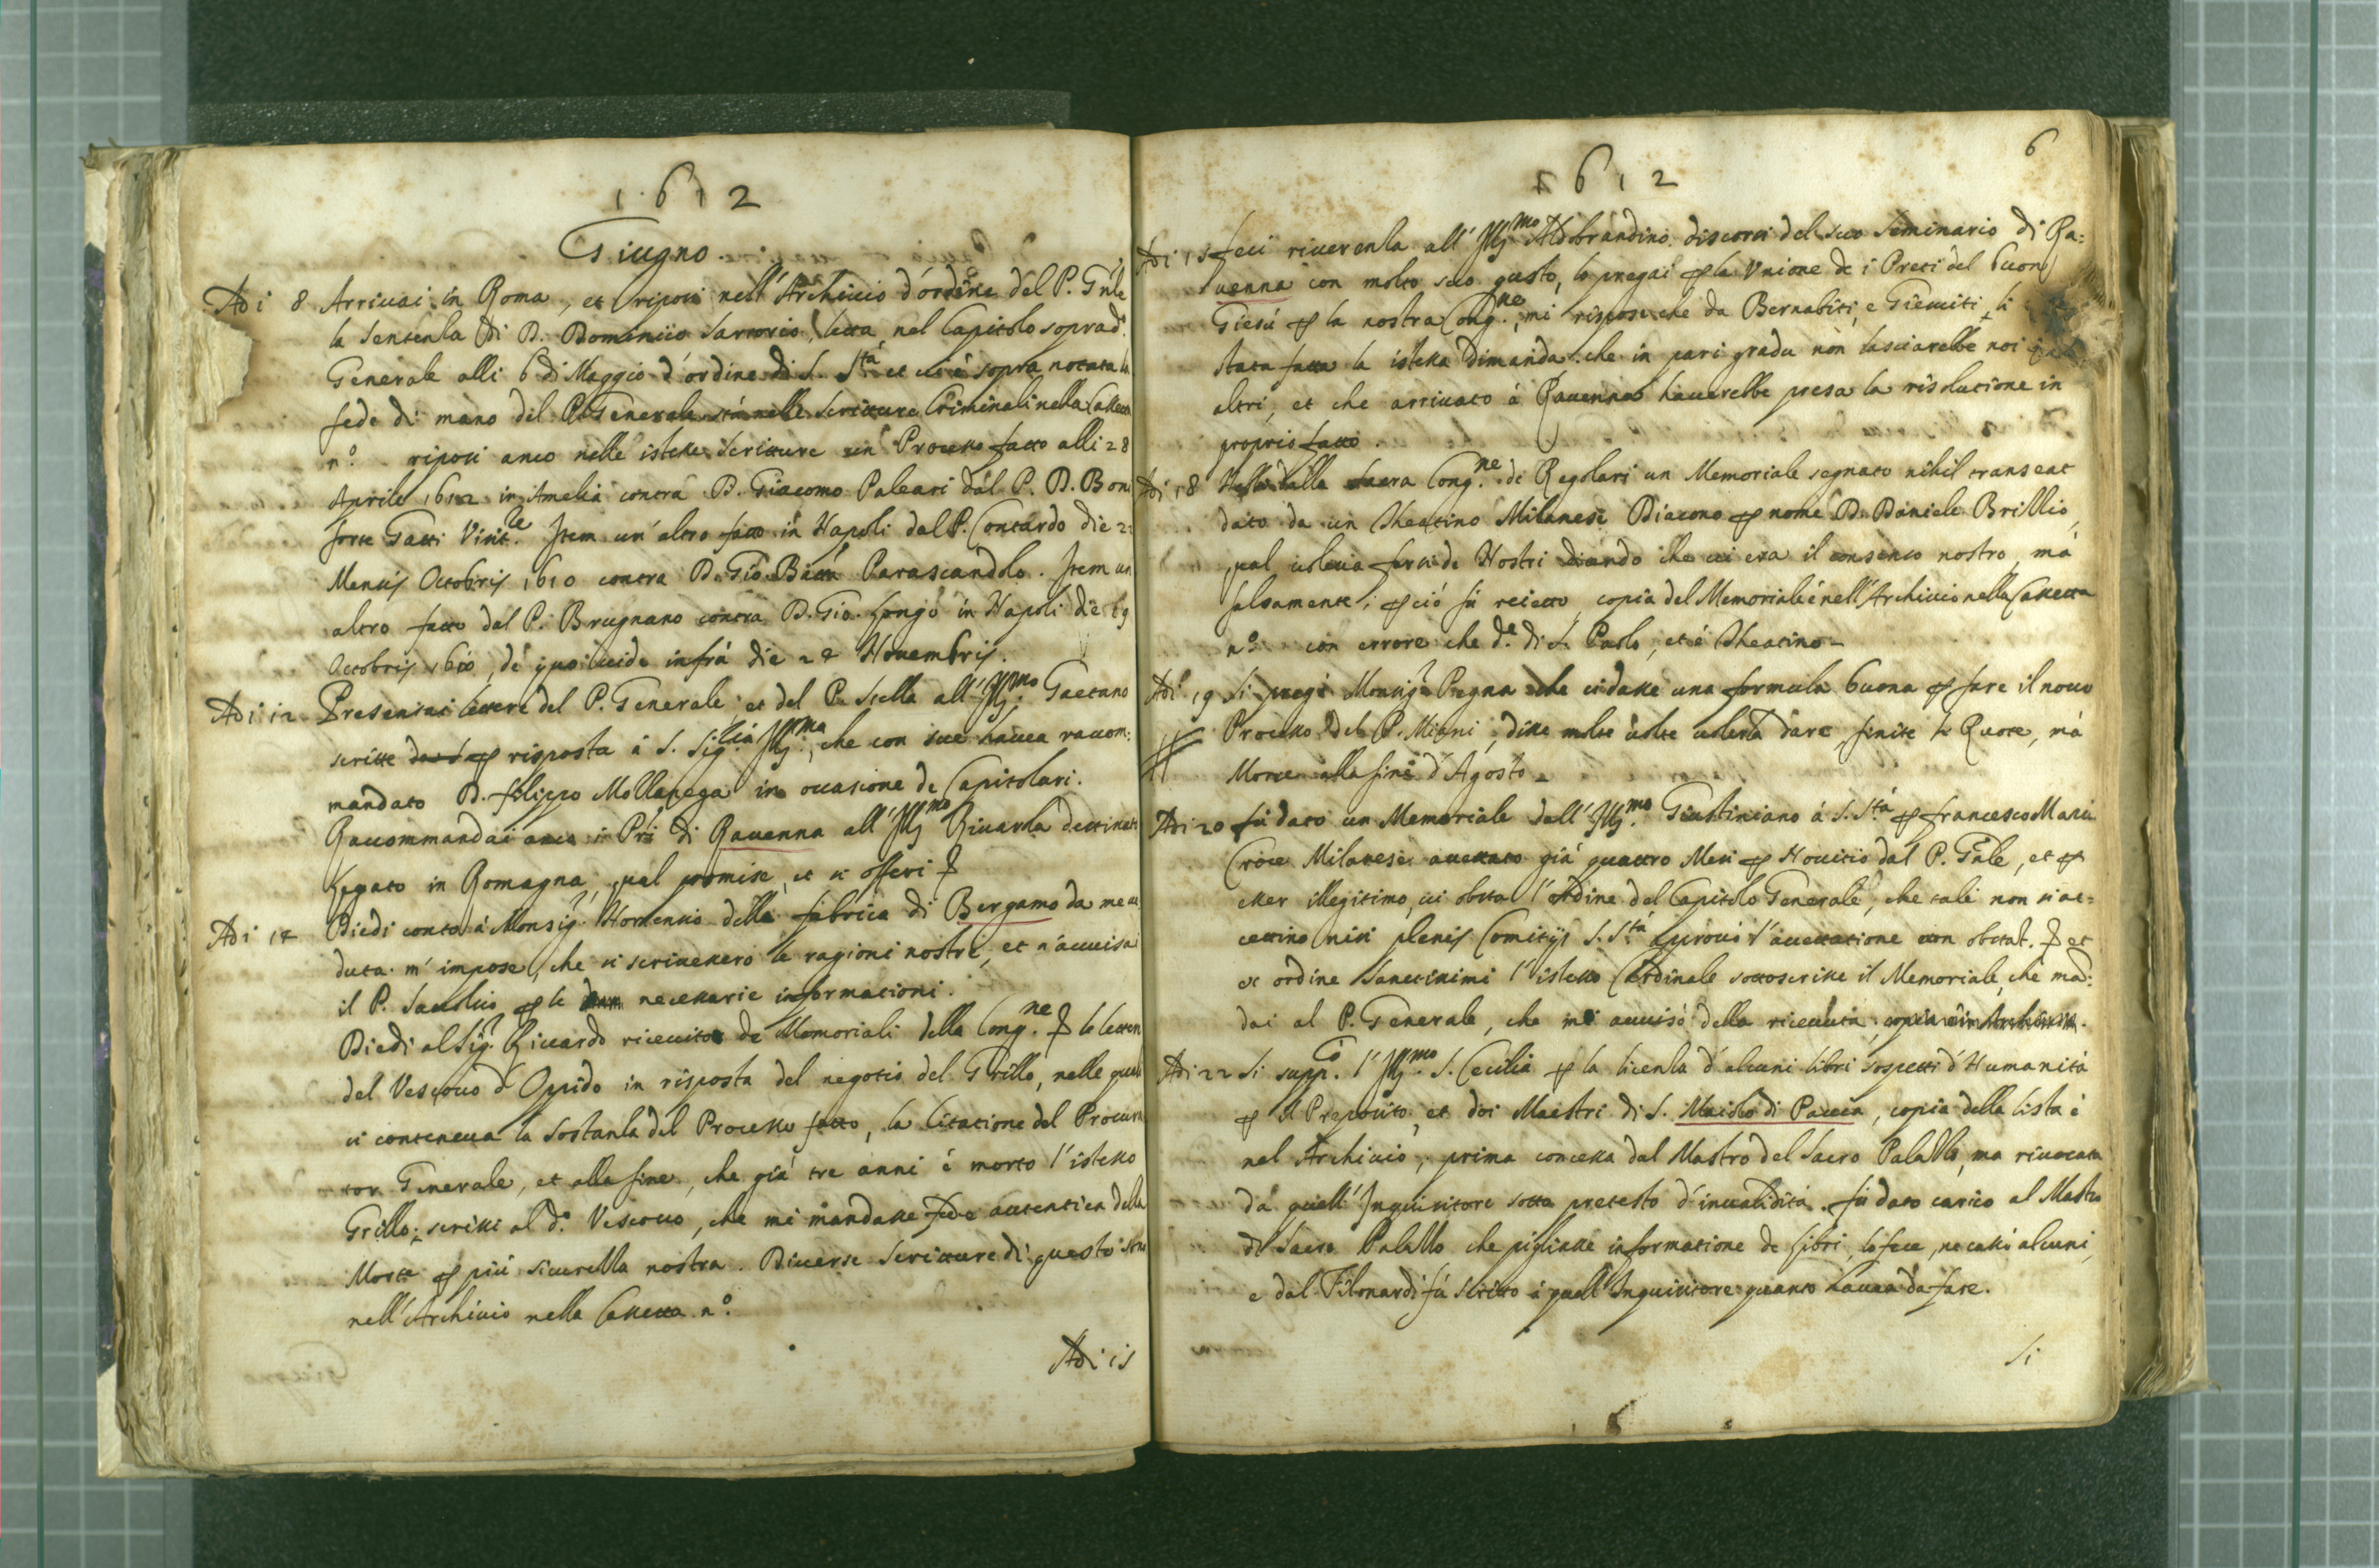 1612
Giugno.
Adi 8 Arrivai in Roma, et riposi nell'Archivio d'ordine del P. Gnle
la sentenza di D. Dominico Sartorio, letta nel Capitolo soprad.
Generale alli 6 di Maggio d'ordine di S. Sta et vi è sopra notata la
fede di mano del P. Generale stà nelle scritture Criminali nella Cassetta
n.o riposi anco nelle istesse scritture un Processo fatto alli 28
Aprile 1612 in Amelia contra D. Giacomo Paleari dal P. D. Bon
forte Gatti Visit.le Item un'altro fatto in Napoli dal P. Contardo die 2
Mensis Octobris 1610 contra D. Gio. Batta Parascandolo. Item un
altro fatto dal P. Brugnano contra D. Gio. Longo in Napoli die 19
Octobris 1610, de quo vide infrà die 28 Novembris.
Adi 12 Presentai lettere del P. Generale, et del P. Stella all'Illmo Gaetano
scritte risposta à S. Sig.ria Illma, che con sue havea raccom:
mandato D. Filippo Mollanega in occasione de Capitolari.
Raccommandai anco i Pri di Ravenna all'Illmo Rivarola destinato
Legato in Romagna, qual promise, et si offerì &
Adi 14 Diedi conto à Monsig.r Hortensio della fabrica di Bergamo da me ve
duta. m'impose, che si scrivessero le ragioni nostre, et n'avvisai
il P. p le necessarie informationi.
Diedi al Sig.r Riccardo ricevitor de Memoriali della Cong.ne & le lettere
del Vescovo d'Oppido in risposta del negotio del Grillo, nelle quali
si conteneva la sostanza del Processo fatto, la Citatione del Procura
tor Generale, et alla fine, che già tre anni è morto l'istesso
Grillo; scrissi al d.o Vescovo, che mi mandasse fede autentica della
Morte p più sicurezza nostra. Diverse scritture di questo sono
nell'Archivio nella Cassetta n.o
Adi 15
6
1612
Adi 15 feci riverenza all'Illmo Aldobrandino, discorsi del suo Seminario di Ra:
venna con molto suo gusto, lo pregai p la Unione de i Preti del buon
Giesù p la nostra Cong.ne, mi rispose che da Bernabiti, e Giesuiti li
stata fatta la istessa dimanda. che in pari gradu non lasciarebbe noi
altri, et che arrivato à Ravenna haverebbe presa la risolutione in
proprio fatto.
Adi 18 dalla Sacra Cong.ne de Regolari un Memoriale segnato nihil transeat
dato da un Theatino Milanese Diacono p nome D. Daniele Brillio,
qual voleva farsi de Nostri dicendo che vi era il consenso nostro, mà
falsamente; p ciò fù reietto, copia del Memoriale è nell'Archivio nella Cassetta
n.o con errore che d.e di S. Paolo, et è Theatino.
Adi 19 Si pregò Monsig.r Pegna che ci dasse una formula buona p fare il novo
Processo del P. Miani, disse molte volte volerla dare, finite le Ruote, mà
Morse alla fine d'Agosto.
Adi 20 fù dato un Memoriale dall'Illmo Giustiniano à S. Stà p Francesco Maria
Croce Milanese accettato già quattro Mesi p Novitio dal P. Gnle, et p
esser illegitimo, vi obsta l'ordine del Capitolo Generale, che tali non si ac:
cettino nisi plenis Comitijs S. Stà approvò l'accettatione non obstat. & et
ex ordine Sanctissimi l'istesso Cardinale sottoscrisse il Memoriale, che mã:
dai al P. Generale, che mi avvisò della ricevuta,
Adi 22 Si supp.cò l'Illmo S. Cecilia p la licenza d'alcuni libri sospetti d'Humanità
p il Preposito, et doi Maestri di S. Maiolo di Pavia, copia della lista è
nel Archivio, prima concessa dal Mastro del Sacro Palazzo, ma rivocata
da quell'Inquisitore sotto pretesto d'invalidità. fù dato carico al Mastro
di Sacro Palazzo che pigliasse informatione de Libri, lo fece, ne cassò alcuni,
e dal Filonardi fù scritto à quell'Inquisitore quanto havea da fare.
Si